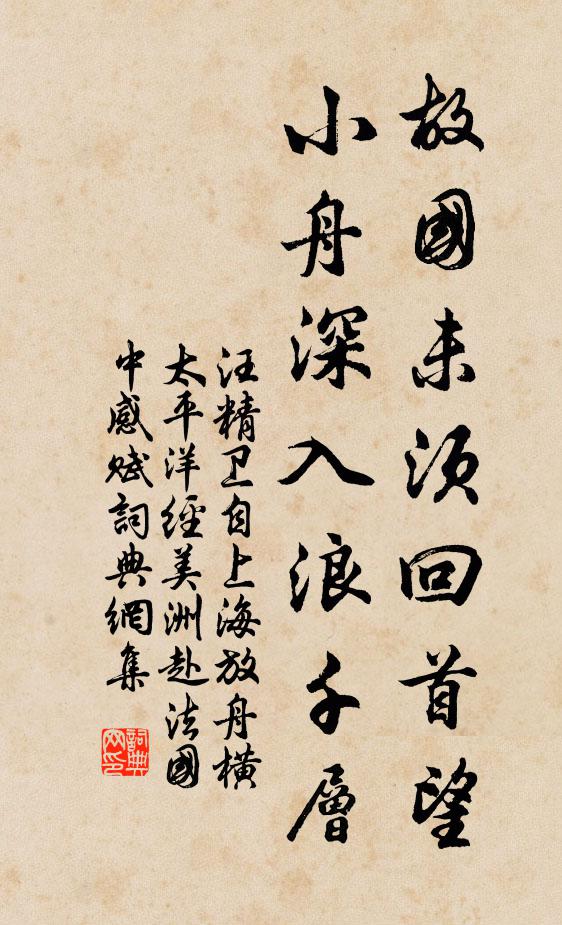 故國未須回首望
小舟深入浪千層
汪精卫自上海放舟橫
太平洋經美洲赴法國
中感赋詞典網集
詞典
网印